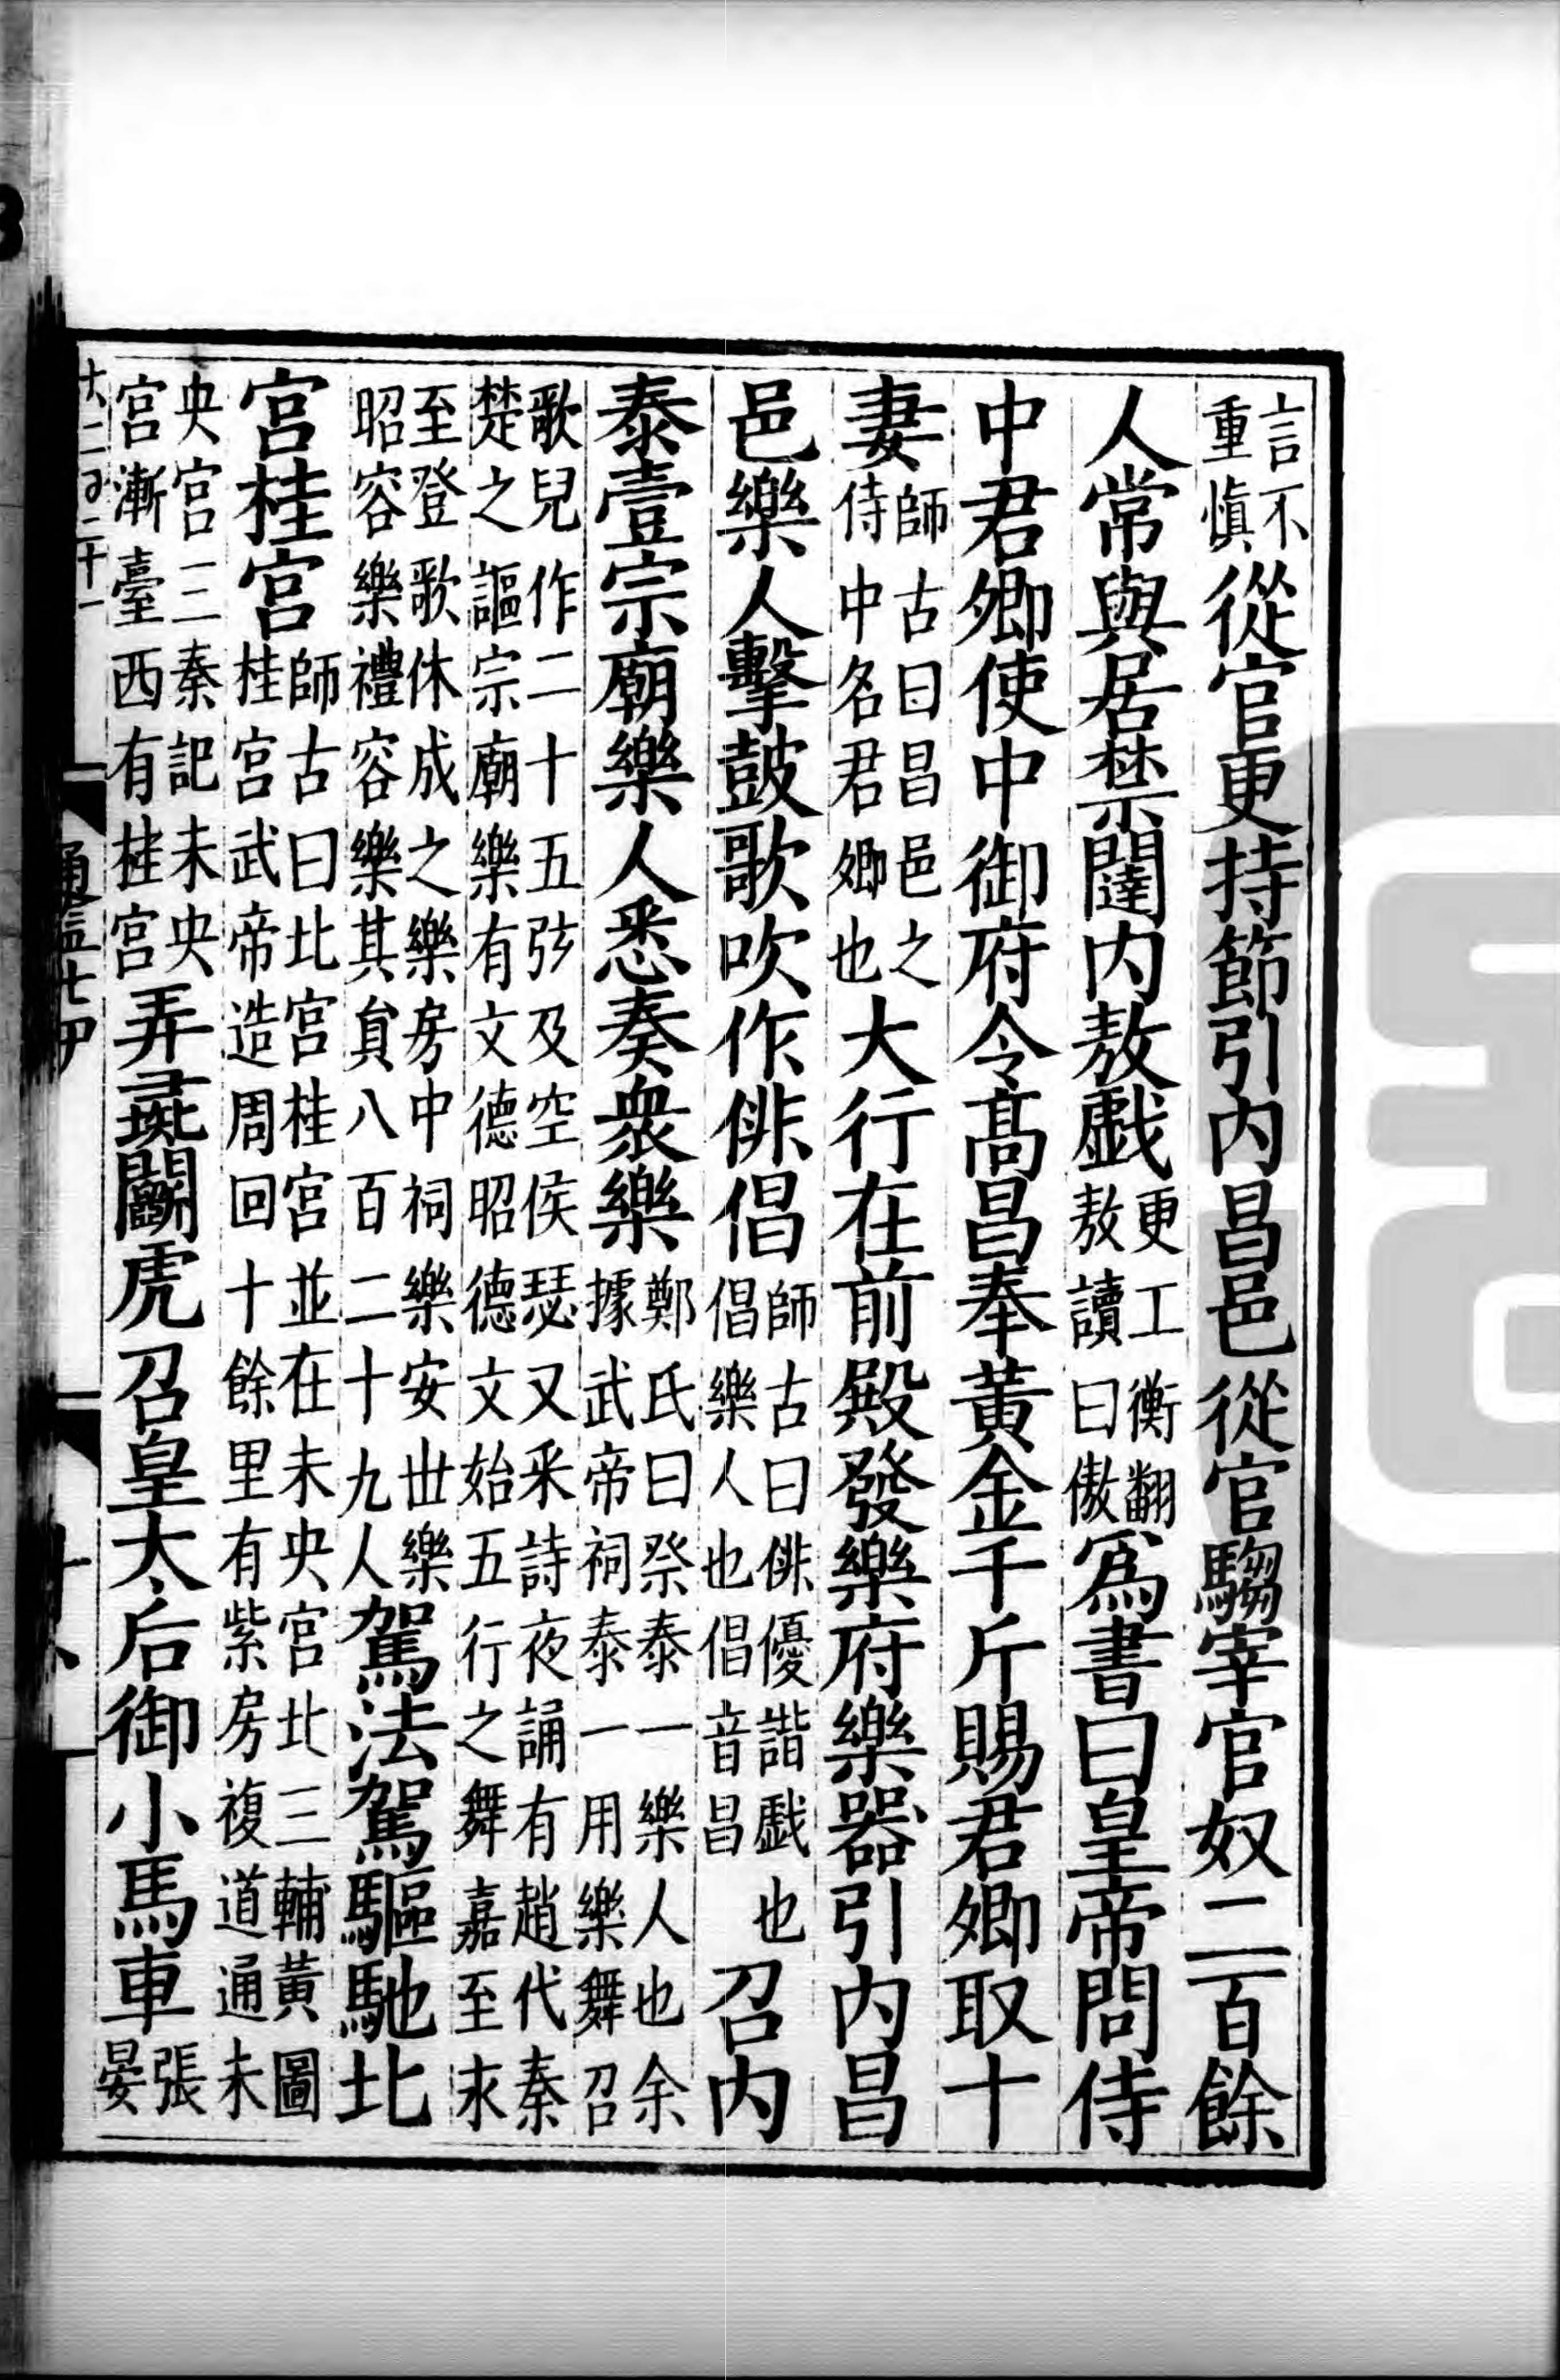 言不重愼從官更持節引內昌邑從官騶宰官奴二百餘
人常與居禁闥內敖戲更工衡翻敖讀曰傲爲書曰皇帝問侍
中君卿使中御府令高昌奉黃金千斤賜君卿取十
妻師古曰昌邑之侍中名君卿也大行在前殿發樂府樂器引內昌
邑樂人擊鼓歌吹作俳倡師古曰俳優諧戲也倡樂人也倡音昌召內
泰壹宗廟樂人悉奏衆樂鄭氏曰祭泰一樂人也余據武帝祠泰一用樂舞召
歌兒作二十五弦及空侯瑟又采詩夜誦有趙代秦楚之謳宗廟樂有文德昭德文始五行之舞嘉至永
至登歌休成之樂房中祠樂安世樂昭容樂禮容樂其員八百二十九人駕法駕驅馳北
宮桂宮師古曰北宮桂宮並在未央宮北三輔黃圖桂宮武帝造周回十餘里有紫房複道通未
央宮三秦記未央宮漸臺西有桂宮弄彘鬭虎召皇太后御小馬車張晏